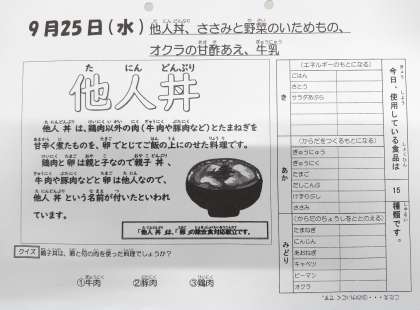 9月25日（水）他人丼、ささみと野菜のいためもの、
オクラの甘酢あえ、牛乳
た にん どんぶり
他人丼
他人丼は、鶏肉以外の肉（牛肉や豚肉など）とたまねぎを
甘辛く煮たものを、卵でとじてご飯の上にのせた料理です。
鶏肉と卵は親と子なので親子丼、
牛肉や豚肉などと卵は他人なので、
他人丼という名前が付いたといわれ
ています。
「他人丼」は、「卵」の除去食対応献立です。
クイズ 親子丼は、卵と何の肉を使った料理でしょうか？
①牛肉 ②豚肉 ③鶏肉
今日、使用している食品は
15
種類です。
き
（エネルギーのもとになる）
ごはん
さとう
サラダあぶら
あか
（からだをつくるもとになる）
ぎゅうにゅう
ぎゅうにく
たまご
だしこんぶ
けずりぶし
ささみ
みどり
（からだのちょうしをととのえる）
たまねぎ
にんじん
あおねぎ
キャベツ
ピーマン
オクラ